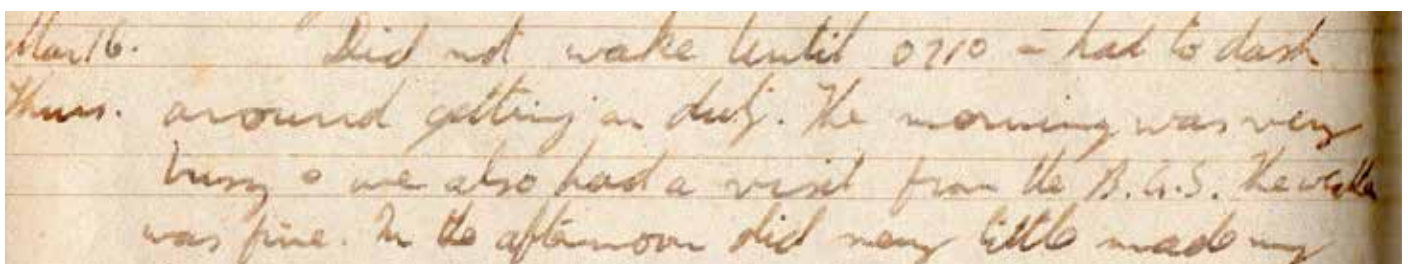 Mar 16. Did not wake until 0710 - had to dash
Thurs. around getting on duty. The morning was very
busy & we also had a visit from the B.G.S. The weather
was fine. In the afternoon did very little made my